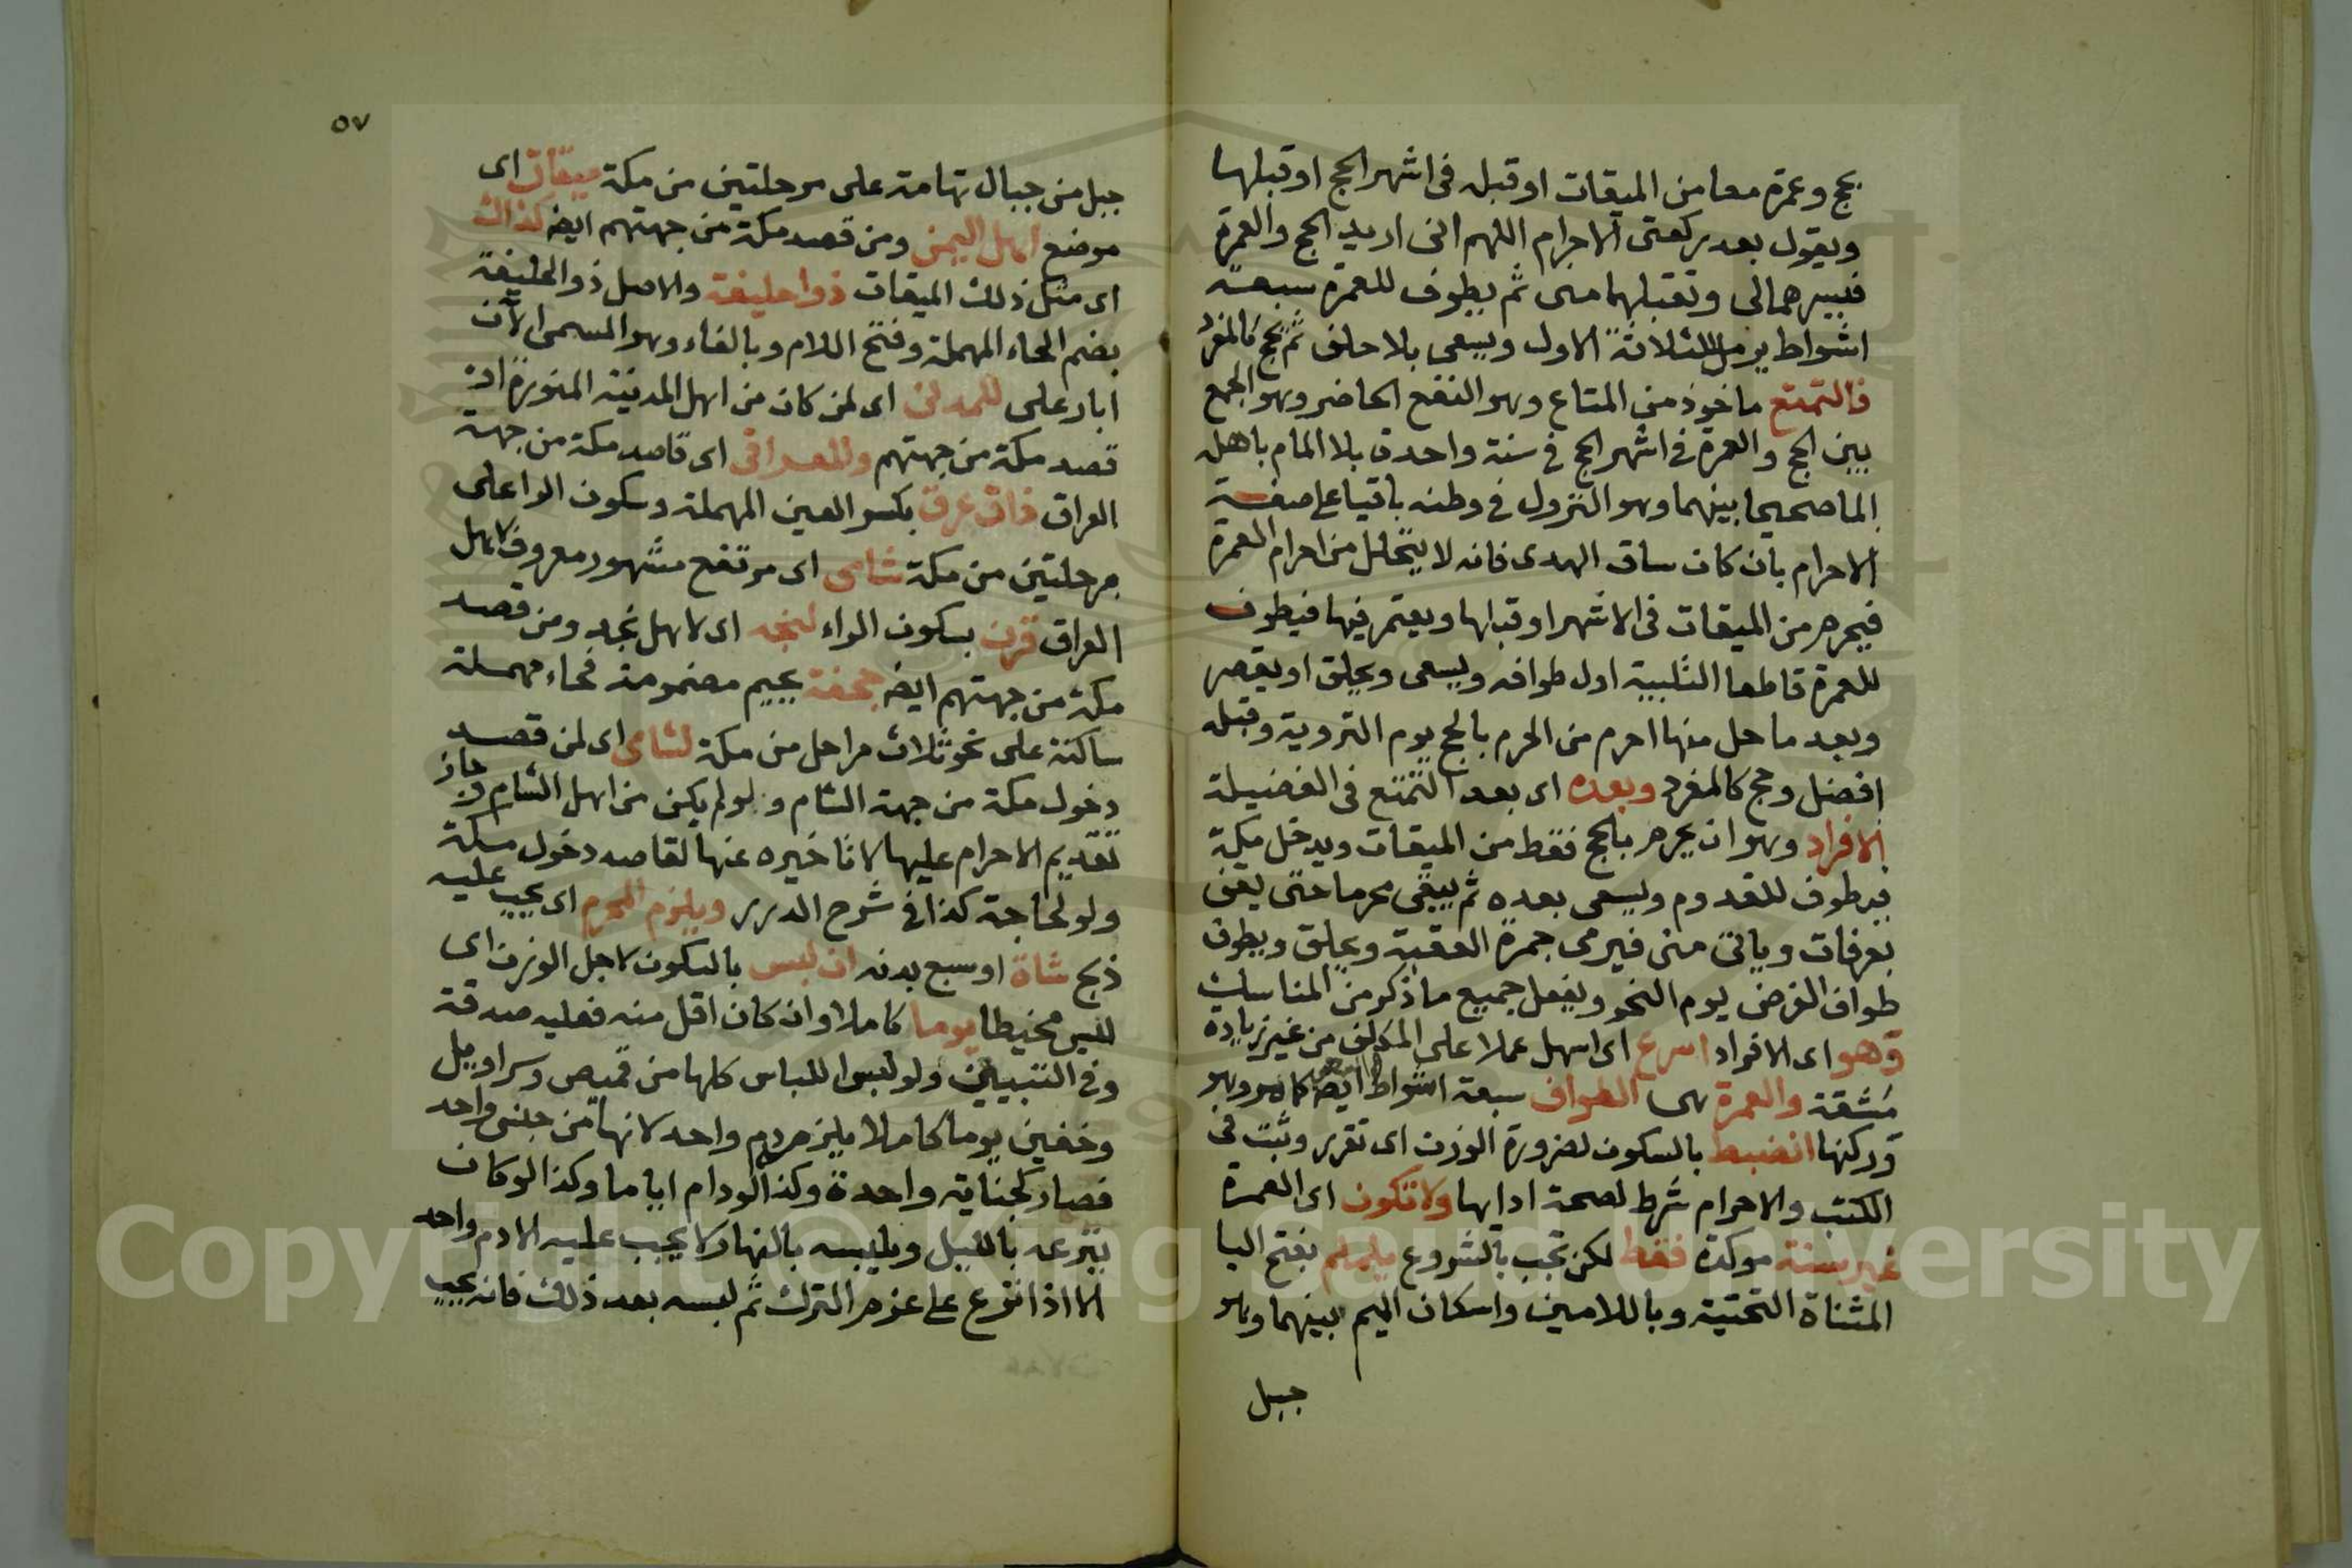 بحج وعمرة معا من الميقات او قبله فى اشهر الحج او قبلها
ويقول بعد ركعتى الاحرام اللهم انى اريد الحج والعمرة
فيسرهما لى وتقبلهما منى ثم يطوف للعمرة سبعة
اشواط يرمل للثلاثة الاول ويسعى بلا حلق ثم يحج كالمفرد
فالتمتع ماخوذ من المتاع وهو النفع الحاضر وهو الجمع
بين الحج والعمرة فى اشهر الحج فى سنة واحدة بلا المام باهله
الماما صحيحا بينهما وهو النزول فى وطنه باقيا على صفة
الاحرام بان كان ساق الهدى فانه لا يتحلل من احرام العمرة
فيحرم من الميقات فى الاشهر او قبلها ويعتمر فيها فيطوف
للعمرة قاطعا التلبية اول طوافه ويسعى ويحلق او يقصر
وبعد ما حل منها احرم من الحرم بالحج يوم التروية وقبله
افضل وحج كالمفرد وبعده اى بعد التمتع فى الفضيلة
الافراد وهو ان يحرم بالحج فقط من الميقات ويدخل مكة
فيطوف للقدوم ويسعى بعده ثم يبقى محرما حتى يقف
بعرفات وياتى منى فيرمى جمرة العقبة ويحلق ويطوف
طواف الفرض يوم النحر ويفعل جميع ما ذكر من المناسك
وهو اى الافراد اسرع اى اسهل عملا على المكلف من غير زيادة
مشقة والعمرة هى الطواف سبعة اشواط ايضا كما هو وهو
وركنها انضبط بالسكون لضرورة الوزن اى تقرر وثبت فى
الكتب والاحرام شرط لصحة ادايها ولا تكون اى العمرة
غير سنة موكدة فقط لكن تجب بالشروع يلملم بفتح اليا
المثناة التحتية وباللامين واسكان الميم بينهما وهو
جبل
٥٧
جبل من جبال تهامة على مرحلتين من مكة ميقات اى
موضع اهل اليمن ومن قصد مكة من جهتهم ايضا كذاك
اى مثل ذلك الميقات ذو احليفة والاصل ذو الحليفة
بضم الحاء المهملة وفتح اللام وبالفاء وهو المسمى الآن
ابار على للمدنى اى لمن كان من اهل المدينة المنورة او
قصد مكة من جهتهم وللعراقى اى قاصد مكة من جهة
العراق ذات عرق بكسر العين المهملة وسكون الرا على
مرحلتين من مكة شامى اى مرتفع مشهور معروف لاهل
العراق قرن بسكون الراء لنجد اى لاهل نجد ومن قصد
مكة من جهتهم ايضا جحفة بجيم مضمومة فحاء مهملة
ساكنة على نحو ثلاث مراحل من مكة لشامى اى لمن قصد
دخول مكة من جهة الشام ولو لم يكن من اهل الشام وجاز
تقديم الاحرام عليها لا تاخيره عنها لقاصد دخول مكة
ولو لحاجة كذا فى شرح الدرر ويلزم المحرم اى يجب عليه
ذبح شاة او سبع بدنه ان لبس بالسكون لاجل الوزن اى
لبس مخيطا يوما كاملا وان كان اقل منه فعليه صدقة
وفى التبيين ولو لبس اللباس كلها من قميص وسراويل
وخفين يوما كاملا يلزم دم واحد لانها من جنس واحد
فصار كجناية واحدة وكذا لو دام اياما وكذا لو كان
ينزعه بالليل ويلبسه بالنهار لا يجب عليه الا دم واحد
الا اذا نزع على عزم الترك ثم لبسه بعد ذلك فانه يجب
Copyright © King Saud University